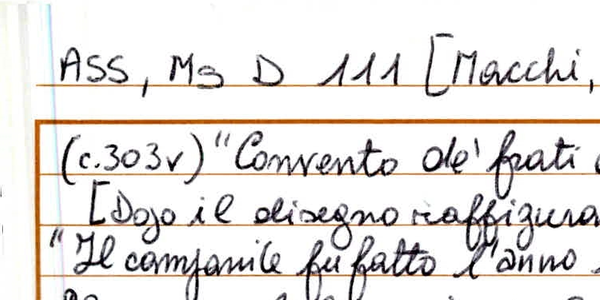 ASS, Ms D 111 [Macchi,
(c.303v) "Convento de' frati
[Dopo il disegno raffigura
"Il campanile fu fatto l'anno